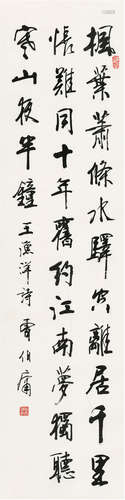 楓葉蕭條水驛空離居千里
悵難同十年舊約江南夢獨聽
寒山夜半鐘 王漁洋詩 曹伯庸